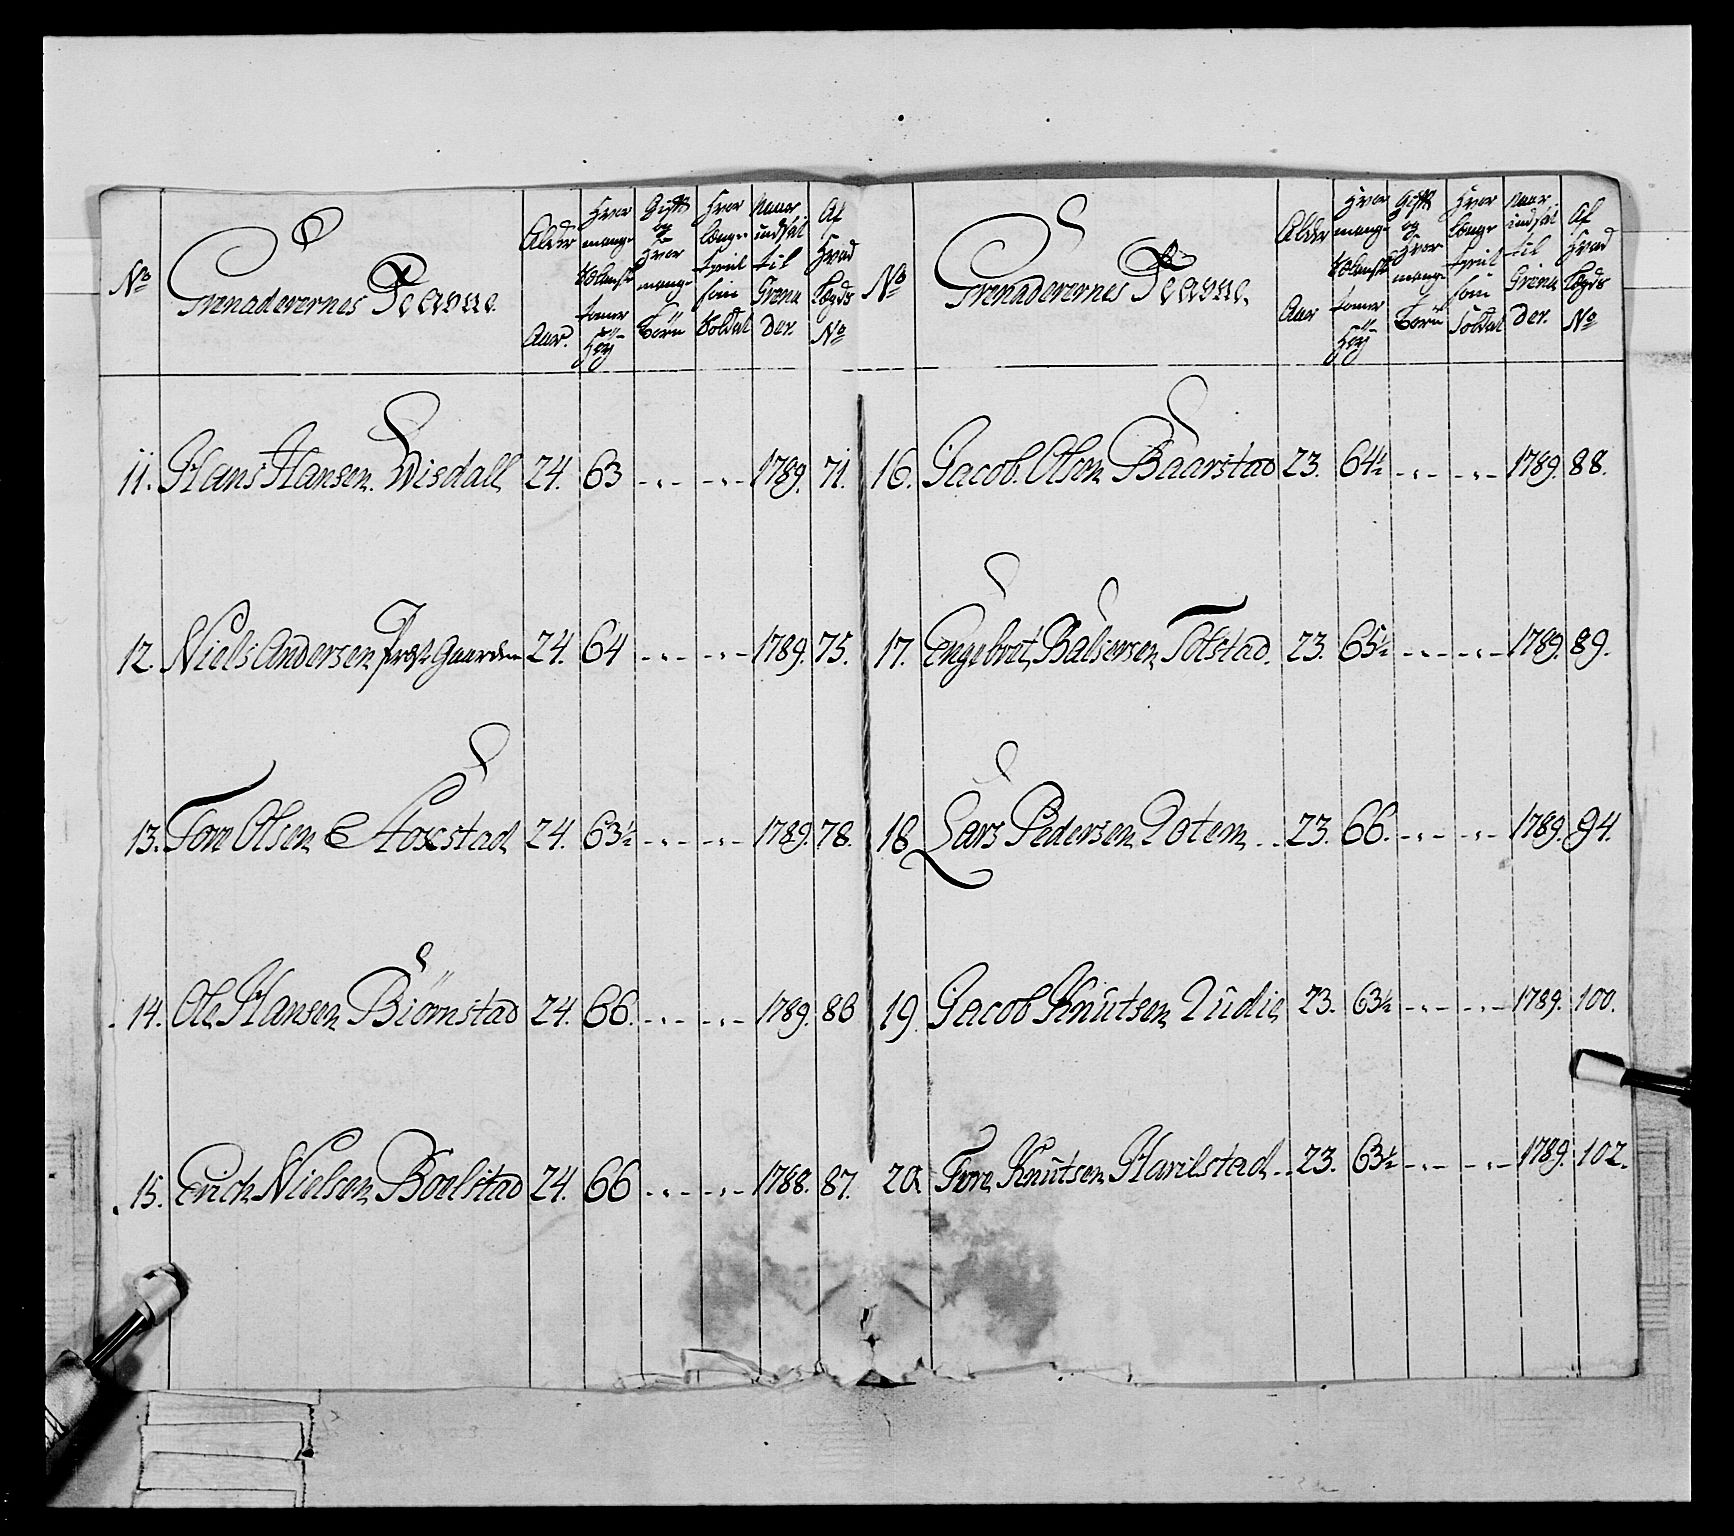 No
Grenaderernes Navne.
Alder
Aar.
Hvor
mange
tomer
Høy
Gift
og
Hvor
mange
Børn
Hvor
længe
tient
som
Soldat
Naar
indsat
til
Grena
der.
Af
Hvad
Lægds
No
11. Hans Hansen Wisdall 24. 63 - . - - . - 1789. 71.
12. Niels Andersen Gaarden 24. 64 - . - - . - 1789. 75.
13. Tore Olsen Stoxstad 24. 63½ - . - - . - 1789. 78.
14. Ole Hansen Biörnstad 24. 66. - . - - . - 1789. 86
15. Erich Nielsen Boelstad 24. 66 - . - - . - 1788. 87.
No
Grenaderernes Navne.
Alder
Aar
Hvor
mange
tomer
Høy
Gift
og
Hvor
mange
Børn
Hvor
længe
tient
som
Soldat
Naar
indsat
til
Grena
der.
Af
Hvad
Lægds
No
16. Jacob Olsen Baarstad 23. 64½ - . - - . - 1789. 88.
17. Engebret Balsersen Tolstad. 23. 65½ - . - - . - 1789. 89.
18 Lars Pedersen Totem 23. 66. - . - - . - 1789. 94.
19. Jacob Knutsen 23. 63½ - . - - . - 1789. 100.
20. Tore Knutsen Harilstad 23. 63½ - . - - . - 1789. 102.